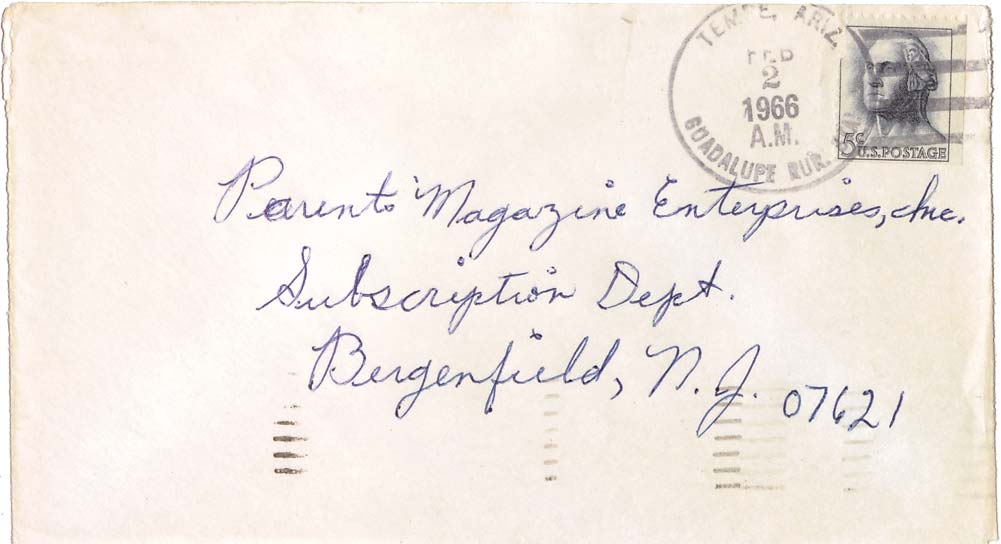 TEMPE, ARIZ.
FEB
2
1966
A.M.
GUADALUPE RUR.
5¢
U.S. POSTAGE
Parents' Magazine Enterprises, Inc.
Subscription Dept.
Bergenfield, N.J. 07621